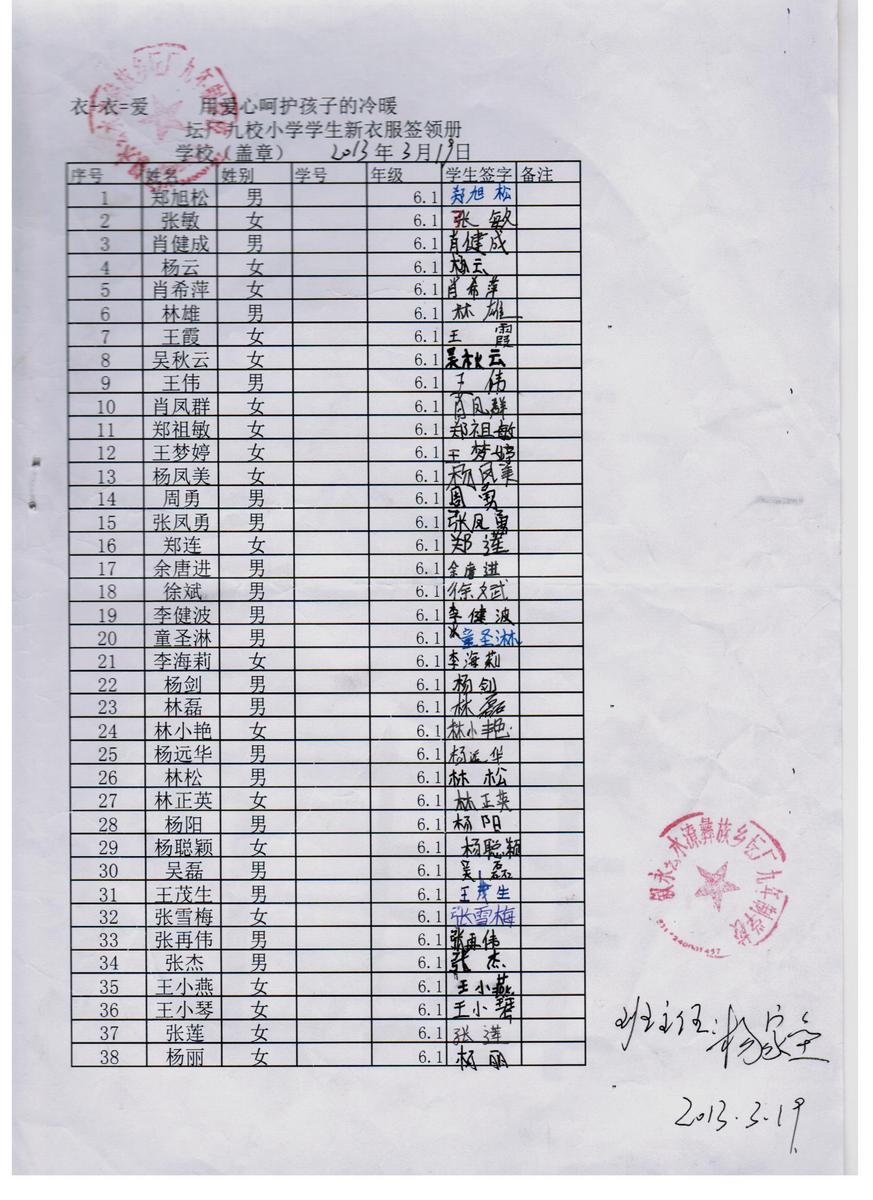 衣+衣=爱 用爱心呵护孩子的冷暖
坛厂九校小学学生新衣服签领册
学校（盖章） 2013年3月19日
序号 姓名 性别 学号 年级 学生签字 备注
1 郑旭松 男 6.1 郑旭松
2 张敏 女 6.1 张敏
3 肖健成 男 6.1 肖健成
4 杨云 女 6.1 杨云
5 肖希萍 女 6.1 肖希萍
6 林雄 男 6.1 林雄
7 王霞 女 6.1 王霞
8 吴秋云 女 6.1 吴秋云
9 王伟 男 6.1 王伟
10 肖凤群 女 6.1 肖凤群
11 郑祖敏 女 6.1 郑祖敏
12 王梦婷 女 6.1 王梦婷
13 杨凤美 女 6.1 杨凤美
14 周勇 男 6.1 周勇
15 张凤勇 男 6.1 张凤勇
16 郑连 女 6.1 郑莲
17 余唐进 男 6.1 余唐进
18 徐斌 男 6.1 徐文武
19 李健波 男 6.1 李健波
20 童圣淋 男 6.1 童圣淋
21 李海莉 女 6.1 李海莉
22 杨剑 男 6.1 杨剑
23 林磊 男 6.1 林磊
24 林小艳 女 6.1 林小艳
25 杨远华 男 6.1 杨远华
26 林松 男 6.1 林松
27 林正英 女 6.1 林正英
28 杨阳 男 6.1 杨阳
29 杨聪颖 女 6.1 杨聪颖
30 吴磊 男 6.1 吴磊
31 王茂生 男 6.1 王茂生
32 张雪梅 女 6.1 张雪梅
33 张再伟 男 6.1 张再伟
34 张杰 男 6.1 张杰
35 王小燕 女 6.1 王小燕
36 王小琴 女 6.1 王小琴
37 张莲 女 6.1 张莲
38 杨丽 女 6.1 杨丽
叙永县水潦彝族乡坛厂九年制学校
班主任：杨家
2013.3.19